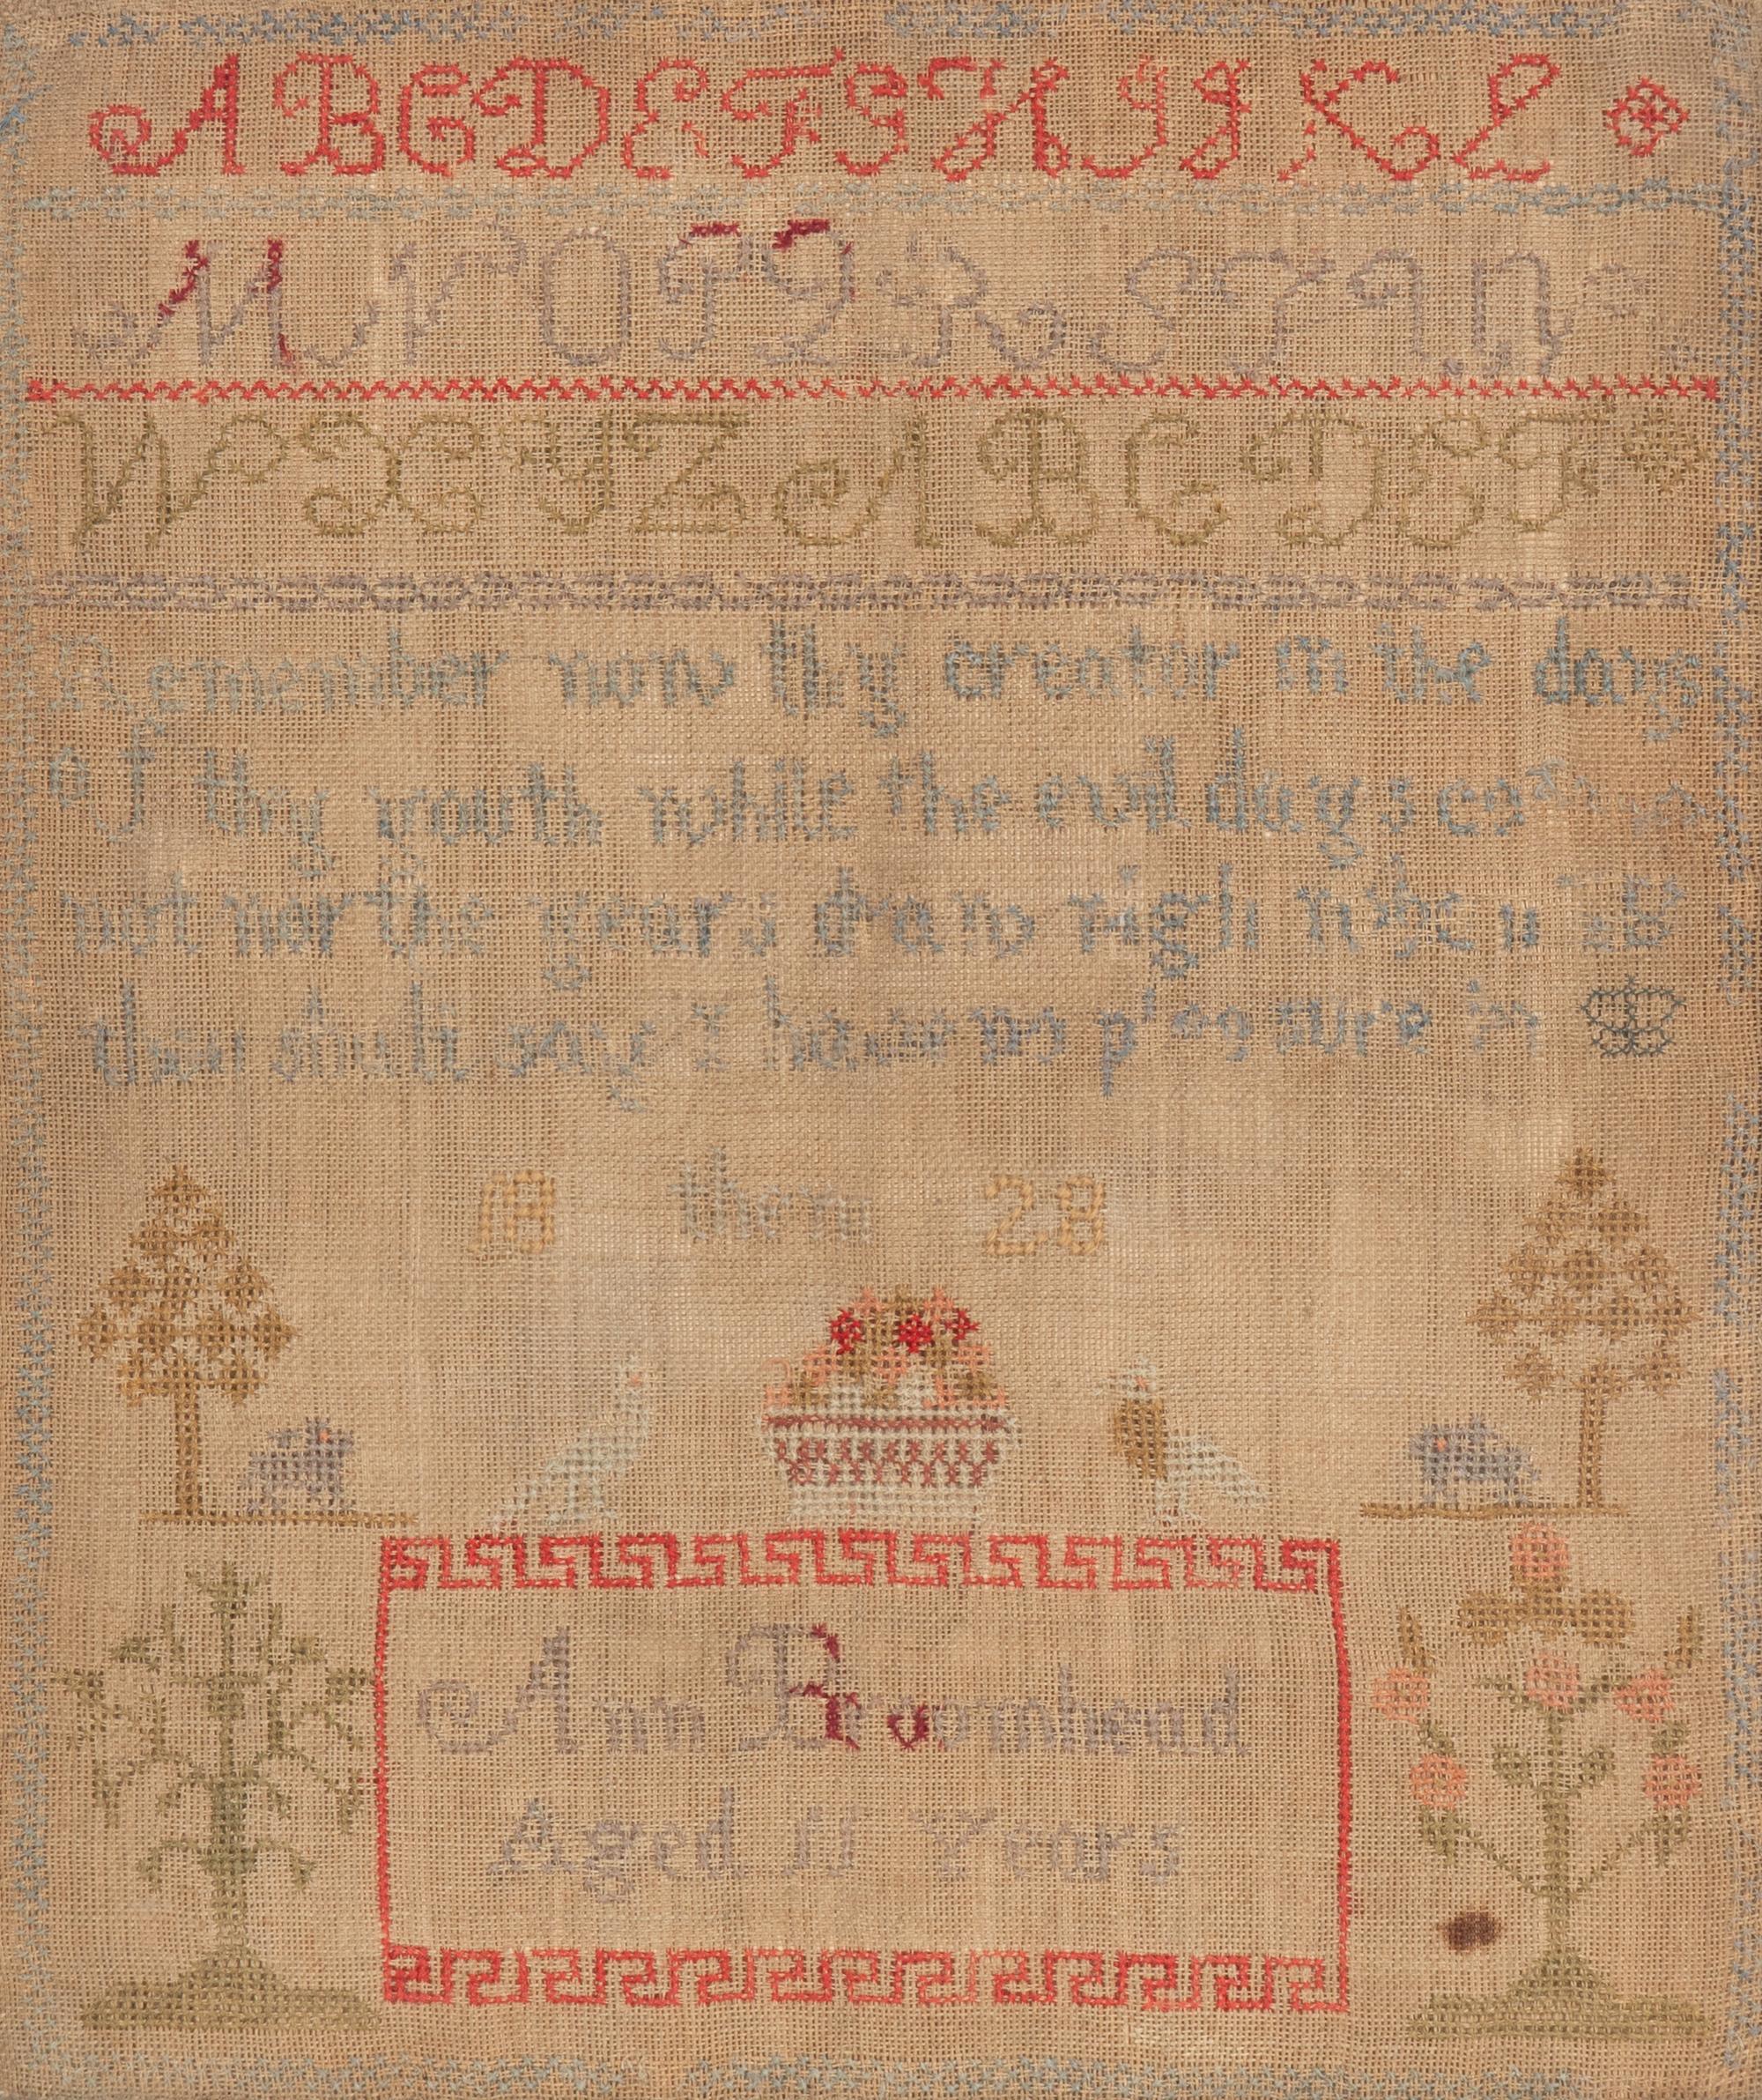 A B C D E F G H I J K L
M N O P Q R S T
W X Y Z A B C D E F
Remember now thy creator in the days
of thy youth while the evil days come
not nor the years draw nigh when
thou shalt say I have no pleasure in
18 them 28
Ann Broomhead
Aged 11 Years